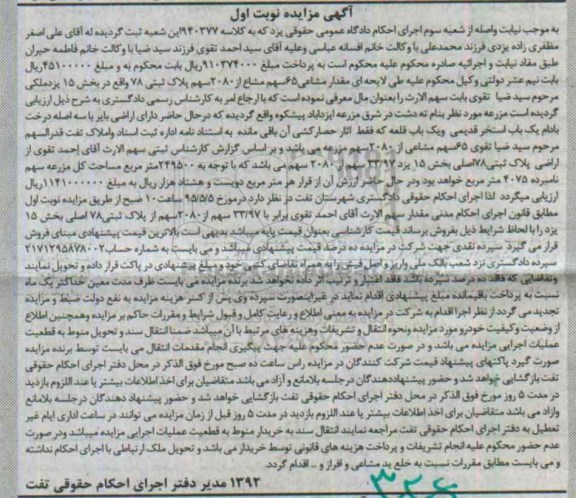 آگهی مزایده نوبت اول
به موجب نیابت واصله از شعبه سوم اجرای احکام دادگاه عمومی حقوقی یزد که به کلاسه ۹۴۰۳۷۷ این شعبه ثبت گردیده له آقای علی اصغر
مظفری زاده یزدی فرزند محمدعلی با وکالت خانم افسانه عباسی وعلیه آقای سید احمد تقوی فرزند سید ضیا با وکالت خانم فاطمه حیران
طبق مفاد نیابت و اجرائیه صادره محکوم علیه محکوم است به پرداخت مبلغ ۹۱۰۳۷۴۰۰۰ ریال بابت محکوم به و مبلغ ۴۵۱۰۰۰۰۰ ریال
بابت نیم عشر دولتی وکیل محکوم علیه طی لایحه ای مقدار مشاعی ۶۵ سهم مشاع از ۲۰۸۰ سهم پلاک ثبتی ۷۸ واقع در بخش ۱۵ یزد ملکی
مرحوم سید ضیا تقوی بابت سهم الارث را بعنوان مال معرفی نموده است که با ارجاع امر به کارشناس رسمی دادگستری به شرح ذیل ارزیابی
گردیده است مزرعه مورد نظر بنام ته دشت در شرق مزرعه ایزدآباد پیشکوه واقع گردیده که درحال حاضر دارای اراضی بایر با سه اصله درخت
بادام یک باب استخر قدیمی ویک باب قلعه که فقط آثار حصارکشی آن باقی مانده به استناد نامه اداره ثبت اسناد واملاک تفت قدرالسهم
مرحوم سید ضیا تقوی ۶۵ سهم مشاعی از ۲۰۸۰ سهم مزرعه می باشد و بر اساس گزارش کارشناس ثبتی سهم الارث آقای احمد تقوی از
اراضی پلاک ثبتی ۷۸ اصلی بخش ۱۵ یزد ۳۳/۹۷ سهم از ۲۰۸۰ سهم می باشد که با توجه به ۲۴۹۵۰۰ متر مربع مساحت کل مزرعه سهم
نامبرده ۴۰۷۵ متر مربع خواهد بود ودر حال حاضر ارزش آن از قرار هر متر مربع دویست و هشتاد هزار ریال به مبلغ ۱۱۴۱۰۰۰۰۰۰ ریال
ارزیابی میگردد لذا اجرای احکام حقوقی دادگستری شهرستان تفت در نظر دارد درمورخ ۹۵/۵/۵ ساعت ۱۰ صبح از طریق مزایده نوبت اول
مطابق قانون اجرای احکام مدنی مقدار سهم الارث آقای احمد تقوی برابر با ۳۳/۹۷ سهم از ۲۰۸۰ سهم از پلاک ثبتی ۷۸ اصلی بخش ۱۵
یزد را با لحاظ شرایط ذیل بفروش برساند قیمت کارشناسی بعنوان قیمت پایه میباشد بدیهی است بالاترین قیمت پیشنهادی مبنای فروش
قرار می گیرد سپرده نقدی جهت شرکت در مزایده ده درصد قیمت پیشنهادی میباشد و می بایست به شماره حساب ۲۱۷۱۲۹۵۸۷۸۰۰۲
سپرده دادگستری نزد شعب بانک ملی واریز و اصل فیش را به همراه تقاضای کتبی خود و مبلغ پیشنهادی در پاکت قرار داده و تحویل نمایند
وتقاضایی که فاقد ده درصد سپرده باشد فاقد اعتبار و ترتیب اثر داده نخواهد شد برنده مزایده می بایست ظرف مدت معین حداکثر یک ماه
نسبت به پرداخت باقیمانده مبلغ پیشنهادی اقدام نماید در غیراینصورت سپرده وی پس از کسر هزینه مزایده به نفع دولت ضبط و مزایده
تجدید می گردد از نظر اجرا اقدام به شرکت در مزایده به معنی اطلاع و رعایت کامل و قبول شرایط و مقررات حاکم بر مزایده وهمچنین اطلاع
از وضعیت وکیفیت خودرو مورد مزایده ونحوه انتقال و تشریفات وهزینه های مرتبط با آن میباشد ضمنا انتقال سند و تحویل منوط به قطعیت
عملیات اجرایی مزایده می باشد و در صورت عدم حضور محکوم علیه جهت پیگیری انجام مقدمات انتقال می بایست توسط برنده مزایده
صورت گیرد پاکتهای پیشنهاد قیمت شرکت کنندگان در مزایده راس ساعت ده صبح مورخ فوق الذکر در محل دفتر اجرای احکام حقوقی
تفت بازگشایی خواهد شد و حضور پیشنهاددهندگان در جلسه بلامانع و آزاد می باشد متقاضیان برای اخذ اطلاعات بیشتر یا عند اللزوم بازدید
در مدت ۵ روز مورخ فوق الذکر در محل دفتر اجرای احکام حقوقی تفت بازگشایی خواهد شد و حضور پیشنهاد دهندگان درجلسه بلامانع
وازاد می باشد متقاضیان برای اخذ اطلاعات بیشتر یا عند اللزوم بازدید در مدت ۵ روز قبل از زمان مزایده می توانند در ساعت اداری ایام غیر
تعطیل به دفتر اجرای احکام حقوقی تفت مراجعه نمایند انتقال سند به خریدار منوط به قطعیت عملیات اجرایی مزایده میباشد ودر صورت
عدم حضور محکوم علیه انجام تشریفات و پرداخت هزینه های قانونی توسط خریدار می باشد و تحویل ملک ارتباطی با اجرای احکام نداشته
و می بایست مطابق مقررات نسبت به خلع ید مشاعی و افراز و .. اقدام گردد
۱۳۹۲ مدیر دفتر اجرای احکام حقوقی تفت